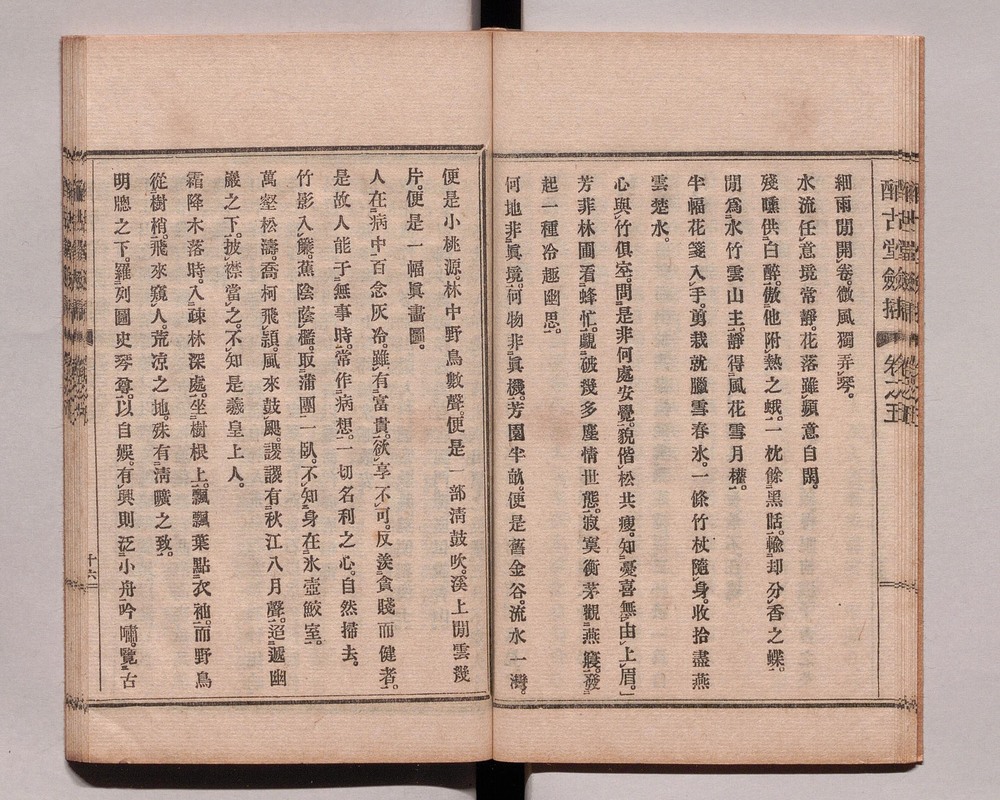 醉古堂劍掃 卷之五
細雨閒開卷。微風獨弄琴。
水流任意境常靜。花落雖頻意自閒。
殘曛供白醉。傲他附熱之蛾。一枕餘黑甜。輸却分香之蝶。
閒爲水竹雲山主。靜得風花雪月權。
半幅花箋入手。剪裁就臘雪春氷。一條竹杖隨身。收拾盡燕
雲楚水。
心與竹俱空。問是非何處安覺。貌偕松共瘦。知憂喜無由上眉。
芳菲林圃看蜂忙。覷破幾多塵情世態。寂寞衡茅觀燕寢。發
起一種冷趣幽思。
何地非眞境。何物非眞機。芳園半畝。便是舊金谷。流水一灣。
便是小桃源。林中野鳥數聲。便是一部淸鼓吹。溪上閒雲幾
片。便是一幅眞畫圖。
人在病中。百念灰冷。雖有富貴。欲享不可。反羨貪賤而健者。
是故人能于無事時。常作病想。一切名利之心。自然掃去。
竹影入簾。蕉陰蔭檻。取蒲團一臥。不知身在氷壺鮫室。
萬壑松濤。喬柯飛穎。風來鼓颶。謖謖有秋江八月聲。迢遞幽
巖之下。披襟當之。不知是羲皇上人。
霜降木落時。入疎林深處。坐樹根上。飄飄葉點衣袖。而野鳥
從樹梢飛來窺人。荒凉之地。殊有淸曠之致。
明牕之下。羅列圖史琴尊。以自娛。有興則泛小舟吟嘯。覽古
十六